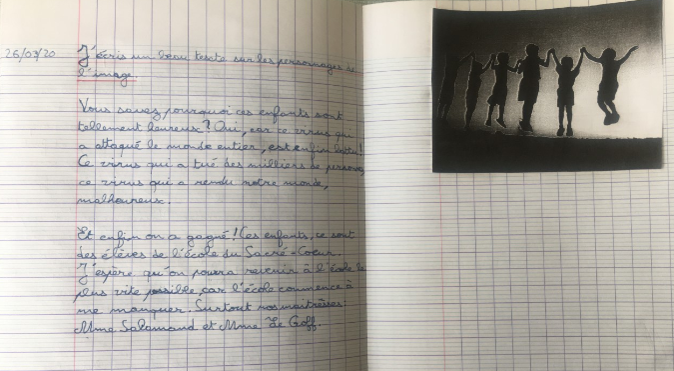 26/03/20 J'écris un beau texte sur les personnages de
l'image.
Vous savez pourquoi ces enfants sont
tellement heureux? Oui, car ce virus qui
a attaqué le monde entier, est enfin battu!
Ce virus qui a tué des milliers de personnes,
ce virus qui a rendu notre monde,
malheureux.
Et enfin on a gagné! Ces enfants, ce sont
des élèves de l'école du Sacré-Coeur.
J'espère qu'on pourra revenir à l'école le
plus vite possible, car l'école commence à
me manquer. Surtout nos maîtresses:
Mme Salamand et Mme Le Goff.